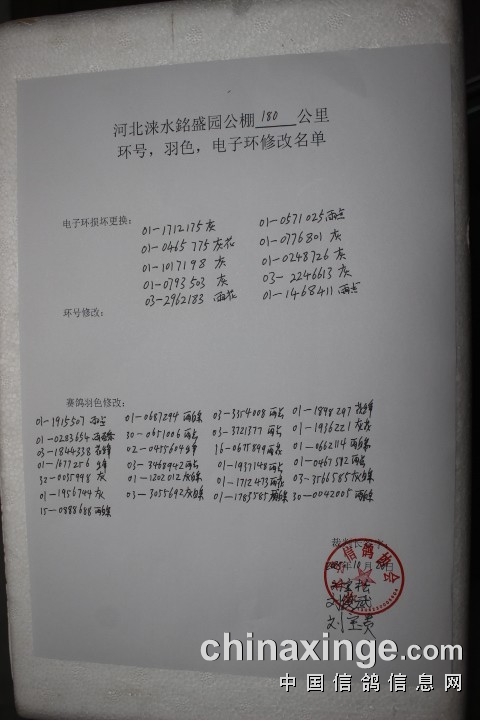 河北涞水銘盛园公棚 180 公里
环号，羽色，电子环修改名单
电子环损坏更换：
01-1712175 灰
01-0571025 雨点
01-0465775 灰花
01-0776801 灰
01-1017198 灰
01-0248726 灰
01-0793503 灰
03-2246613 灰
03-2962183 雨花
01-1468411 雨点
环号修改：
赛鸽羽色修改：
01-1915507
01-0687294 雨白条
03-3354008 雨点
01-1898297
01-0283654
30-0651006 雨点
03-3721377 雨点
01-1936221
03-1844338
02-0475604
16-0675899
01-0662114 雨白条
01-1677256
03-3468942 雨点
01-1937148 雨点
01-0467592 雨点
32-0055998 灰
01-1202012 灰白条
01-1712473 雨花
03-3566585 灰白条
01-1956744 灰
03-3055692 灰白条
01-1783585
30-0042005 雨白条
15-0888688 雨白条
裁判长
年10月
刘宝贵
chinaxinge.com
中国信鸽信息网